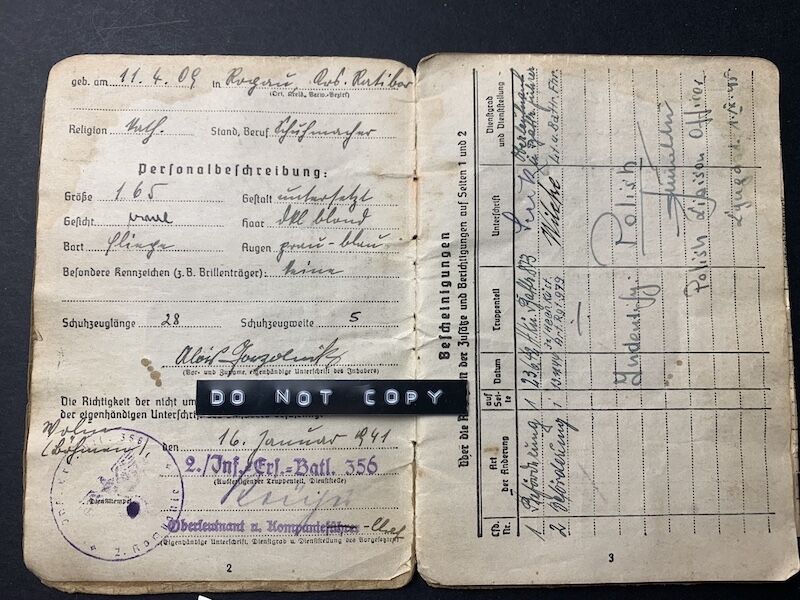 geb. am 11.4.09 in Rogau, Krs. Ratibor
(Ort, Kreis, Verw.-Bezirk)
Religion kath. Stand, Beruf Schuhmacher
Personalbeschreibung:
Größe 165 Gestalt untersetzt
Gesicht oval Haar dkl. blond
Bart Fliege Augen grau-blau
Besondere Kennzeichen (z.B. Brillenträger): keine
Schuhzeuglänge 28 Schuhzeugweite 5
Alois
(Vor- und Zuname, eigenhändige Unterschrift des Inhabers)
DO NOT COPY
Die Richtigkeit der nicht
der eigenhändigen Unterschrift
(Böhmen), den 16. Januar 1941
2./Inf.-Ers.-Batl. 356
(Ausfertigender Truppenteil, Dienststelle)
Dienststempel
Oberleutnant u. Kompanieführer -Chef
(Eigenhändige Unterschrift, Dienstgrad u. Dienststellung des Vorgesetzten)
2
Bescheinigungen
über die der Zusätze und Berichtigungen auf Seiten 1 und 2
Lfd. Nr. Art der Änderung auf Seite Datum Truppenteil Unterschrift Dienstgrad und Dienststellung
1 Beförderung 1
2 Beförderung 1
Polish
Polish Liaison Officer
3